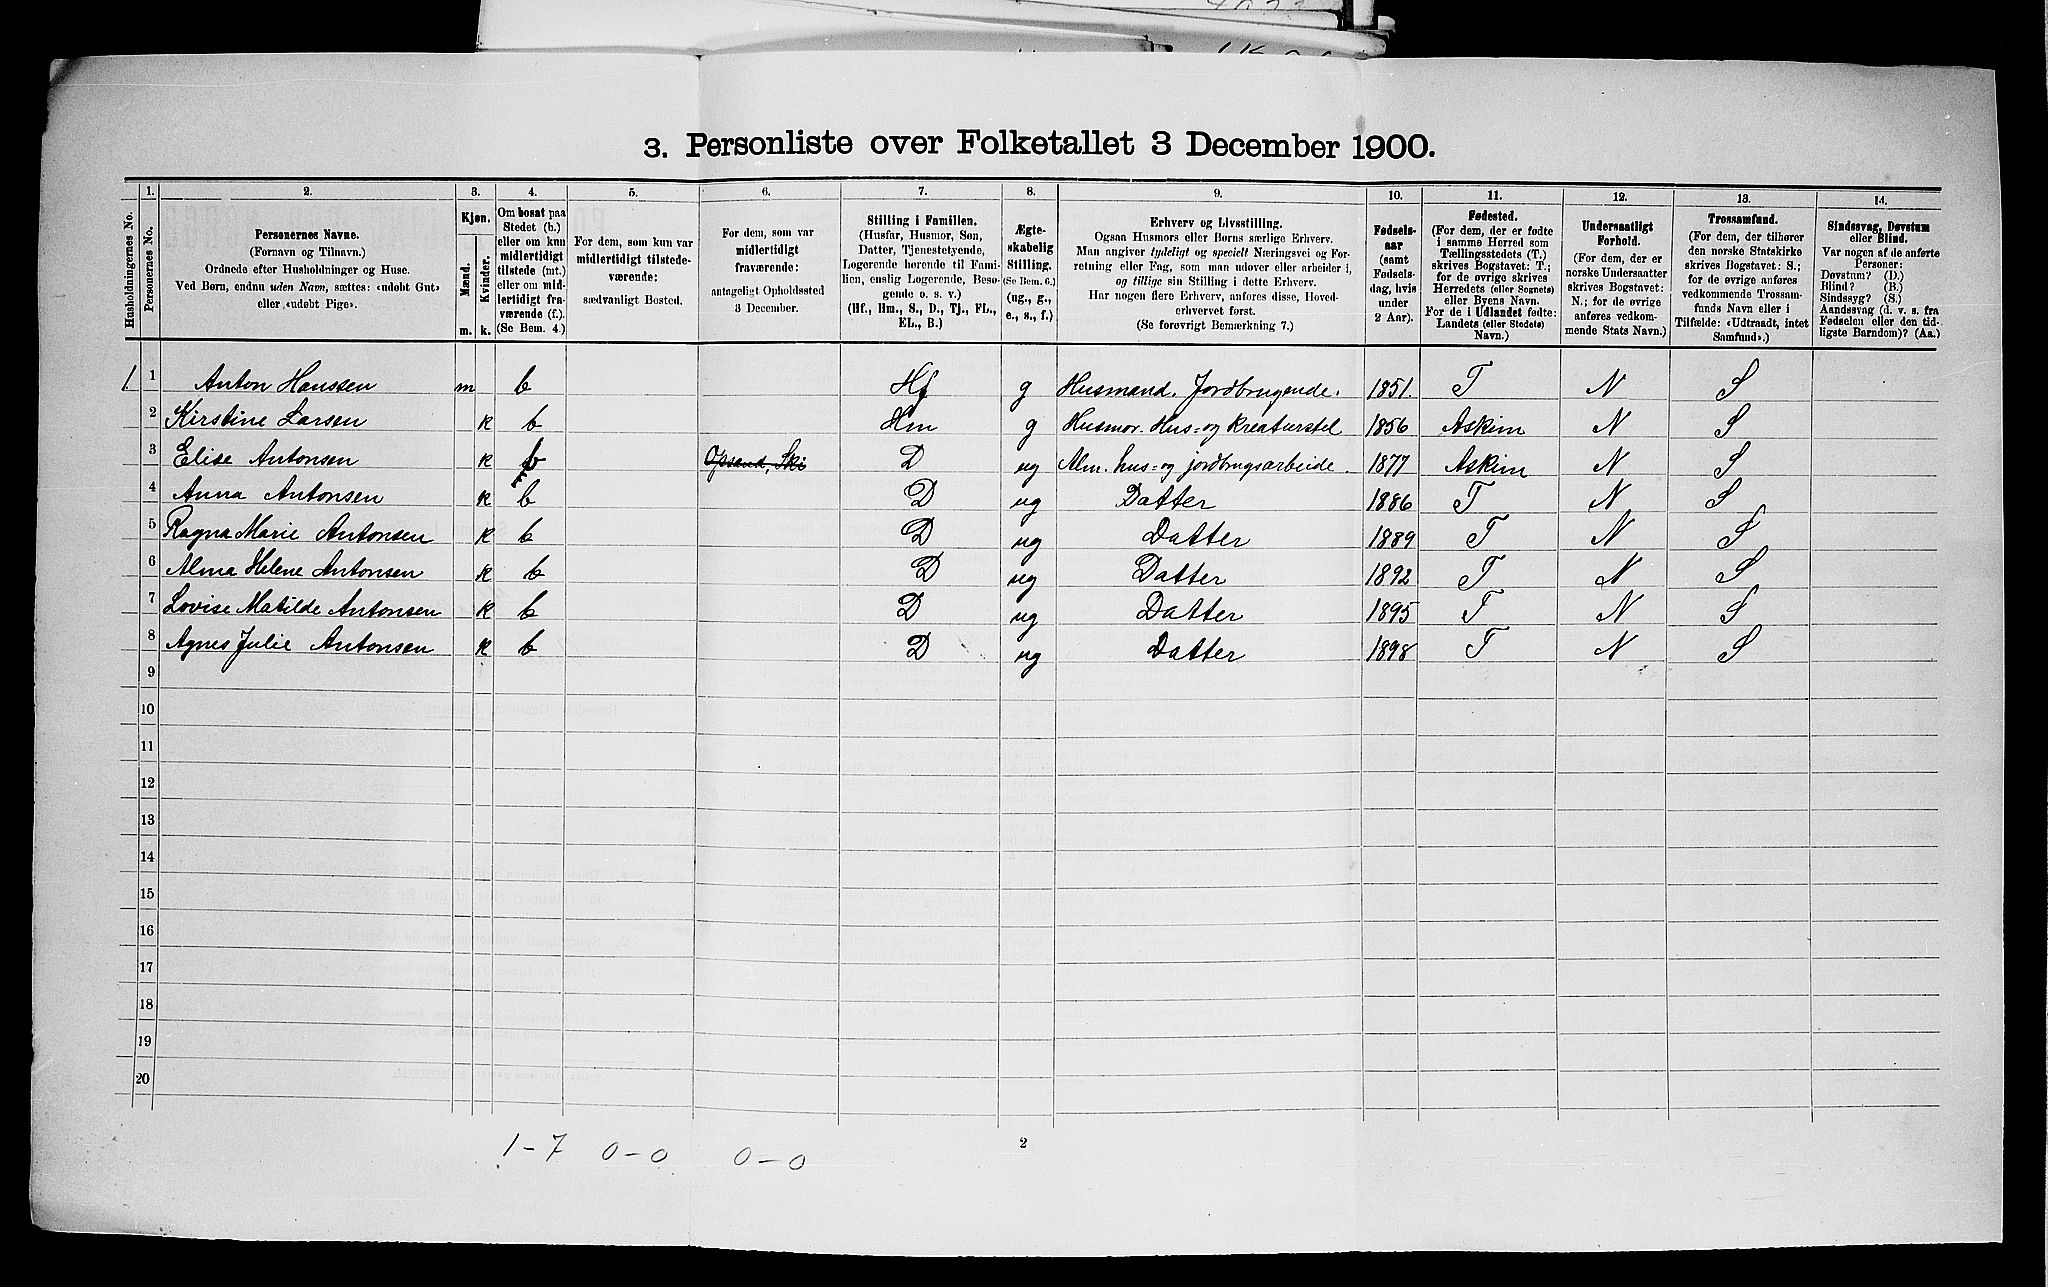 3. Personliste over Folketallet 3 December 1900.
1. 2. 3. 4. 5. 6. 7. 8. 9. 10. 11. 12. 13. 14.
Husholdningernes No.
Personernes No.
Personernes Navne.
(Fornavn og Tilnavn.)
Ordnede efter Husholdninger og Huse.
Ved Børn, endnu uden Navn, sættes: «udøbt Gut»
eller «udøbt Pige».
Kjøn.
Mænd.
Kvinder.
m. k.
Om bosat paa
Stedet (b.)
eller om kun
midlertidigt
tilstede (mt.)
eller om mid-
lertidigt fra-
værende (f.)
(Se Bem. 4.)
For dem, som kun var
midlertidigt tilstede-
værende:
sædvanligt Bosted.
For dem, som var
midlertidigt
fraværende:
antageligt Opholdssted
3 December.
Stilling i Familien.
(Husfar, Husmor, Søn,
Datter, Tjenestetyende,
Logerende hørende til Fami-
lien, enslig Logerende, Besø-
gende o. s. v.)
(Hf., Hm., S., D., Tj., FL.,
EL., B.)
Ægte-
skabelig
Stilling.
(Se Bem. 6.)
(ug., g.,
e., s., f.)
Erhverv og Livsstilling.
Ogsaa Husmors eller Børns særlige Erhverv.
Man angiver tydeligt og specielt Næringsvei og For-
retning eller Fag, som man udøver eller arbeider i,
og tillige sin Stilling i dette Erhverv.
Har nogen flere Erhverv, anføres disse, Hoved-
erhvervet først.
(Se forøvrigt Bemærkning 7.)
Fødsels-
aar
(samt
Fødsels-
dag, hvis
under
2 Aar).
Fødested.
(For dem, der er fødte
i samme Herred som
Tællingsstedets (T.)
skrives Bogstavet: T.;
for de øvrige skrives
Herredets (eller Sognets)
eller Byens Navn.
For de i Udlandet fødte:
Landets (eller Stedets)
Navn.)
Undersaatligt
Forhold.
(For dem, der er
norske Undersaatter
skrives Bogstavet:
N.; for de øvrige
anføres vedkom-
mende Stats Navn.)
Trossamfund.
(For dem, der tilhører
den norske Statskirke
skrives Bogstavet: S.;
for de øvrige anføres
vedkommende Trossam-
funds Navn eller i
Tilfælde: «Udtraadt, intet
Samfund».)
Sindssvag, Døvstum
eller Blind.
Var nogen af de anførte
Personer:
Døvstum? (D.)
Blind? (B.)
Sindssyg? (S.)
Aandssvag (d. v. s. fra
Fødselen eller den tid-
ligste Barndom)? (Aa.)
1. 1 Anton Hanssen m b Hf g Husmand. Jordbrugende. 1851. T N S
2 Kirstine Larsen k b Hm g Husmor. Hus- og kreaturstel 1856 Askim N S
3 Elise Antonsen k b Opsand, Ski D ug Alm. hus- og jordbrugsarbeide. 1877 Askim N S
4 Anna Antonsen k b D ug Datter 1886 T N S
5 Ragna Marie Antonsen k b D ug Datter 1889 T N S
6 Alma Helene Antonsen k b D ug Datter 1892 T N S
7 Lovise Matilde Antonsen k b D ug Datter 1895 T N S
8 Agnes Julie Antonsen k b D ug Datter 1898 T N S
9
10
11
12
13
14
15
16
17
18
19
20
2
1-7 0-0 0-0